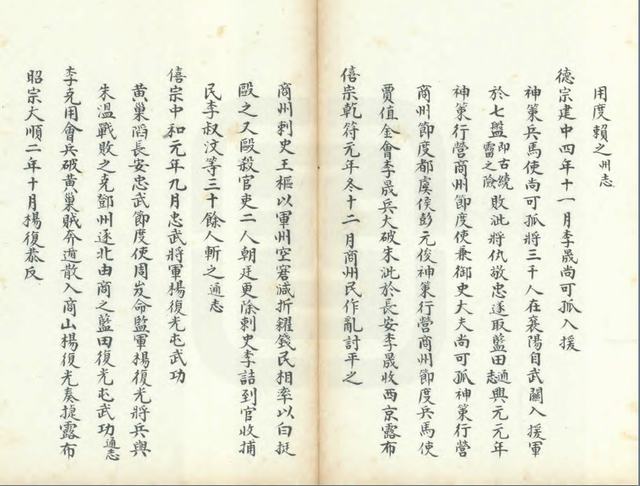 用度賴之州志
德宗建中四年十一月李晟尚可孤入援
神策兵馬使尚可孤將三千人在襄陽自武關入援軍
於七盤即古繞霤之險敗泚將仇敬忠遂取藍田通志興元元年
神策行營商州節度使兼御史大夫尚可孤神策行營
商州節度都虞侯彭元俊神策行營商州節度兵馬使
賈值金會李晟兵大破朱泚於長安李晟收西京露布
僖宗乾符元年冬十二月商州民作亂討平之
商州刺史王樞以軍州空窘減折糴錢民相率以白挺
毆之又毆殺官吏二人朝廷更除刺史李誥到官收捕
民李叔汶等三十餘人斬之通志
僖宗中和元年九月忠武將軍楊復光屯武功
黃巢陷長安忠武節度使周岌命監軍楊復光將兵與
朱溫戰敗之克鄧州逐北由商之藍田復光屯武功通志
李克用會兵破黃巢賊奔遁散入商山楊復光奏捷露布
昭宗大順二年十月楊復恭反